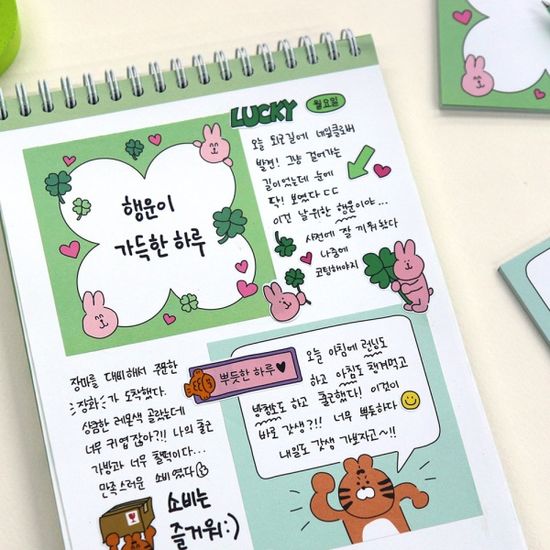 LUCKY
월요일
행운이
가득한 하루
오늘 퇴근길에 네잎클로버
발견! 그냥 걸어가는
길이었는데 눈에
딱! 보였다 ㄷㄷ
이건 날 위한 행운이야...
사전에 잘 끼워놨다
나중에
코팅해야지
장마를 대비해서 주문한
장화가 도착했다.
상큼한 레몬색 골랐는데
너무 귀엽잖아?!! 나의 출근
가방과 너무 찰떡이다...
만족스러운 소비였다
소비는
즐거워:)
뿌듯한 하루♥
오늘 아침에 런닝도
하고 아침도 챙겨먹고
방청소도 하고 출근했다! 이것이
바로 갓생?!! 너무 뿌듯하다
내일도 갓생 가보자고~!!